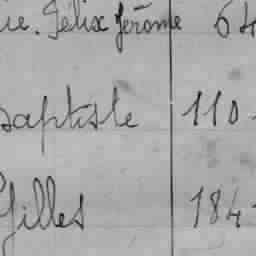 ie. Félix Jérôme 64
saptiste 110-
Gilles 184-